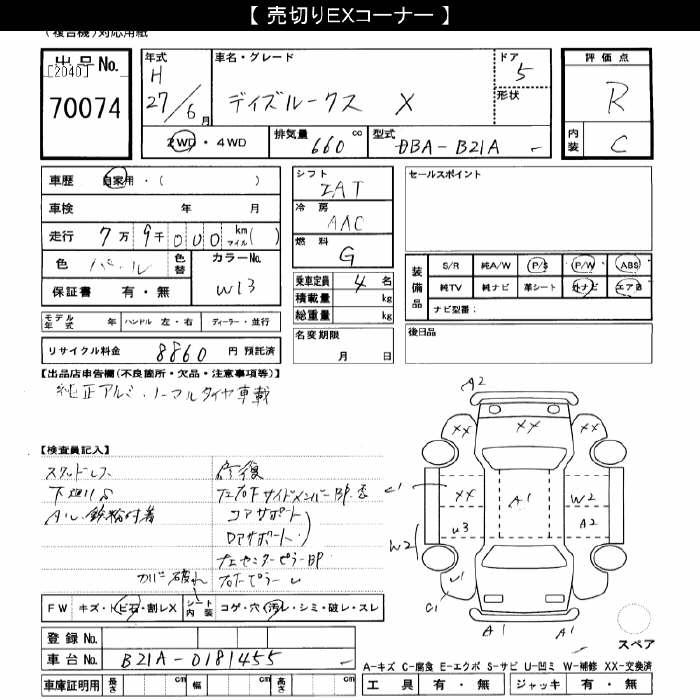 【 売切りEXコーナー 】
(複合機)対応用紙
出品No.
[2040]
70074
年式
H
27/6月
車名・グレード
デイズルークス X
ドア
5
形状
2WD・4WD
排気量 660 cc
型式 DBA-B21A
評価点
R
内装
C
車歴 自家用・( )
車検 年 月
走行 7万9千000 km マイル( )
色 パール 色替
カラーNo.
W13
保証書 有・無
モデル年式 年 ハンドル 左・右 ディーラー・並行
リサイクル料金 8860 円 預託済
シフト
IAT
冷房
AAC
燃料
G
乗車定員 4 名
積載量 kg
総重量 kg
名変期限
月 日
セールスポイント
装備品
S/R 純A/W P/S P/W ABS
純TV 純ナビ 革シート 外ナビ エアB
ナビ型番:
後日品
【出品店申告欄(不良箇所・欠品・注意事項等)】
純正アルミ・ノーマルタイヤ車載
【検査員記入】
スタッドレス
下廻りS
修復
コアサポート
ロアサポート
カバー破れ
FW キズ・トビ石・割レX
シート内装 コゲ・穴・汚レ・シミ・破レ・スレ
登録No.
車台No. B21A-0181455
車庫証明用 長さ cm 幅 cm 高さ cm
A2
XX XX
XX A1 W2
U3 A2
W2
U1
C1
A1 A1
スペア
A-キズ C-腐食 E-エクボ S-サビ U-凹ミ W-補修 XX-交換済
工具 有・無 ジャッキ 有・無